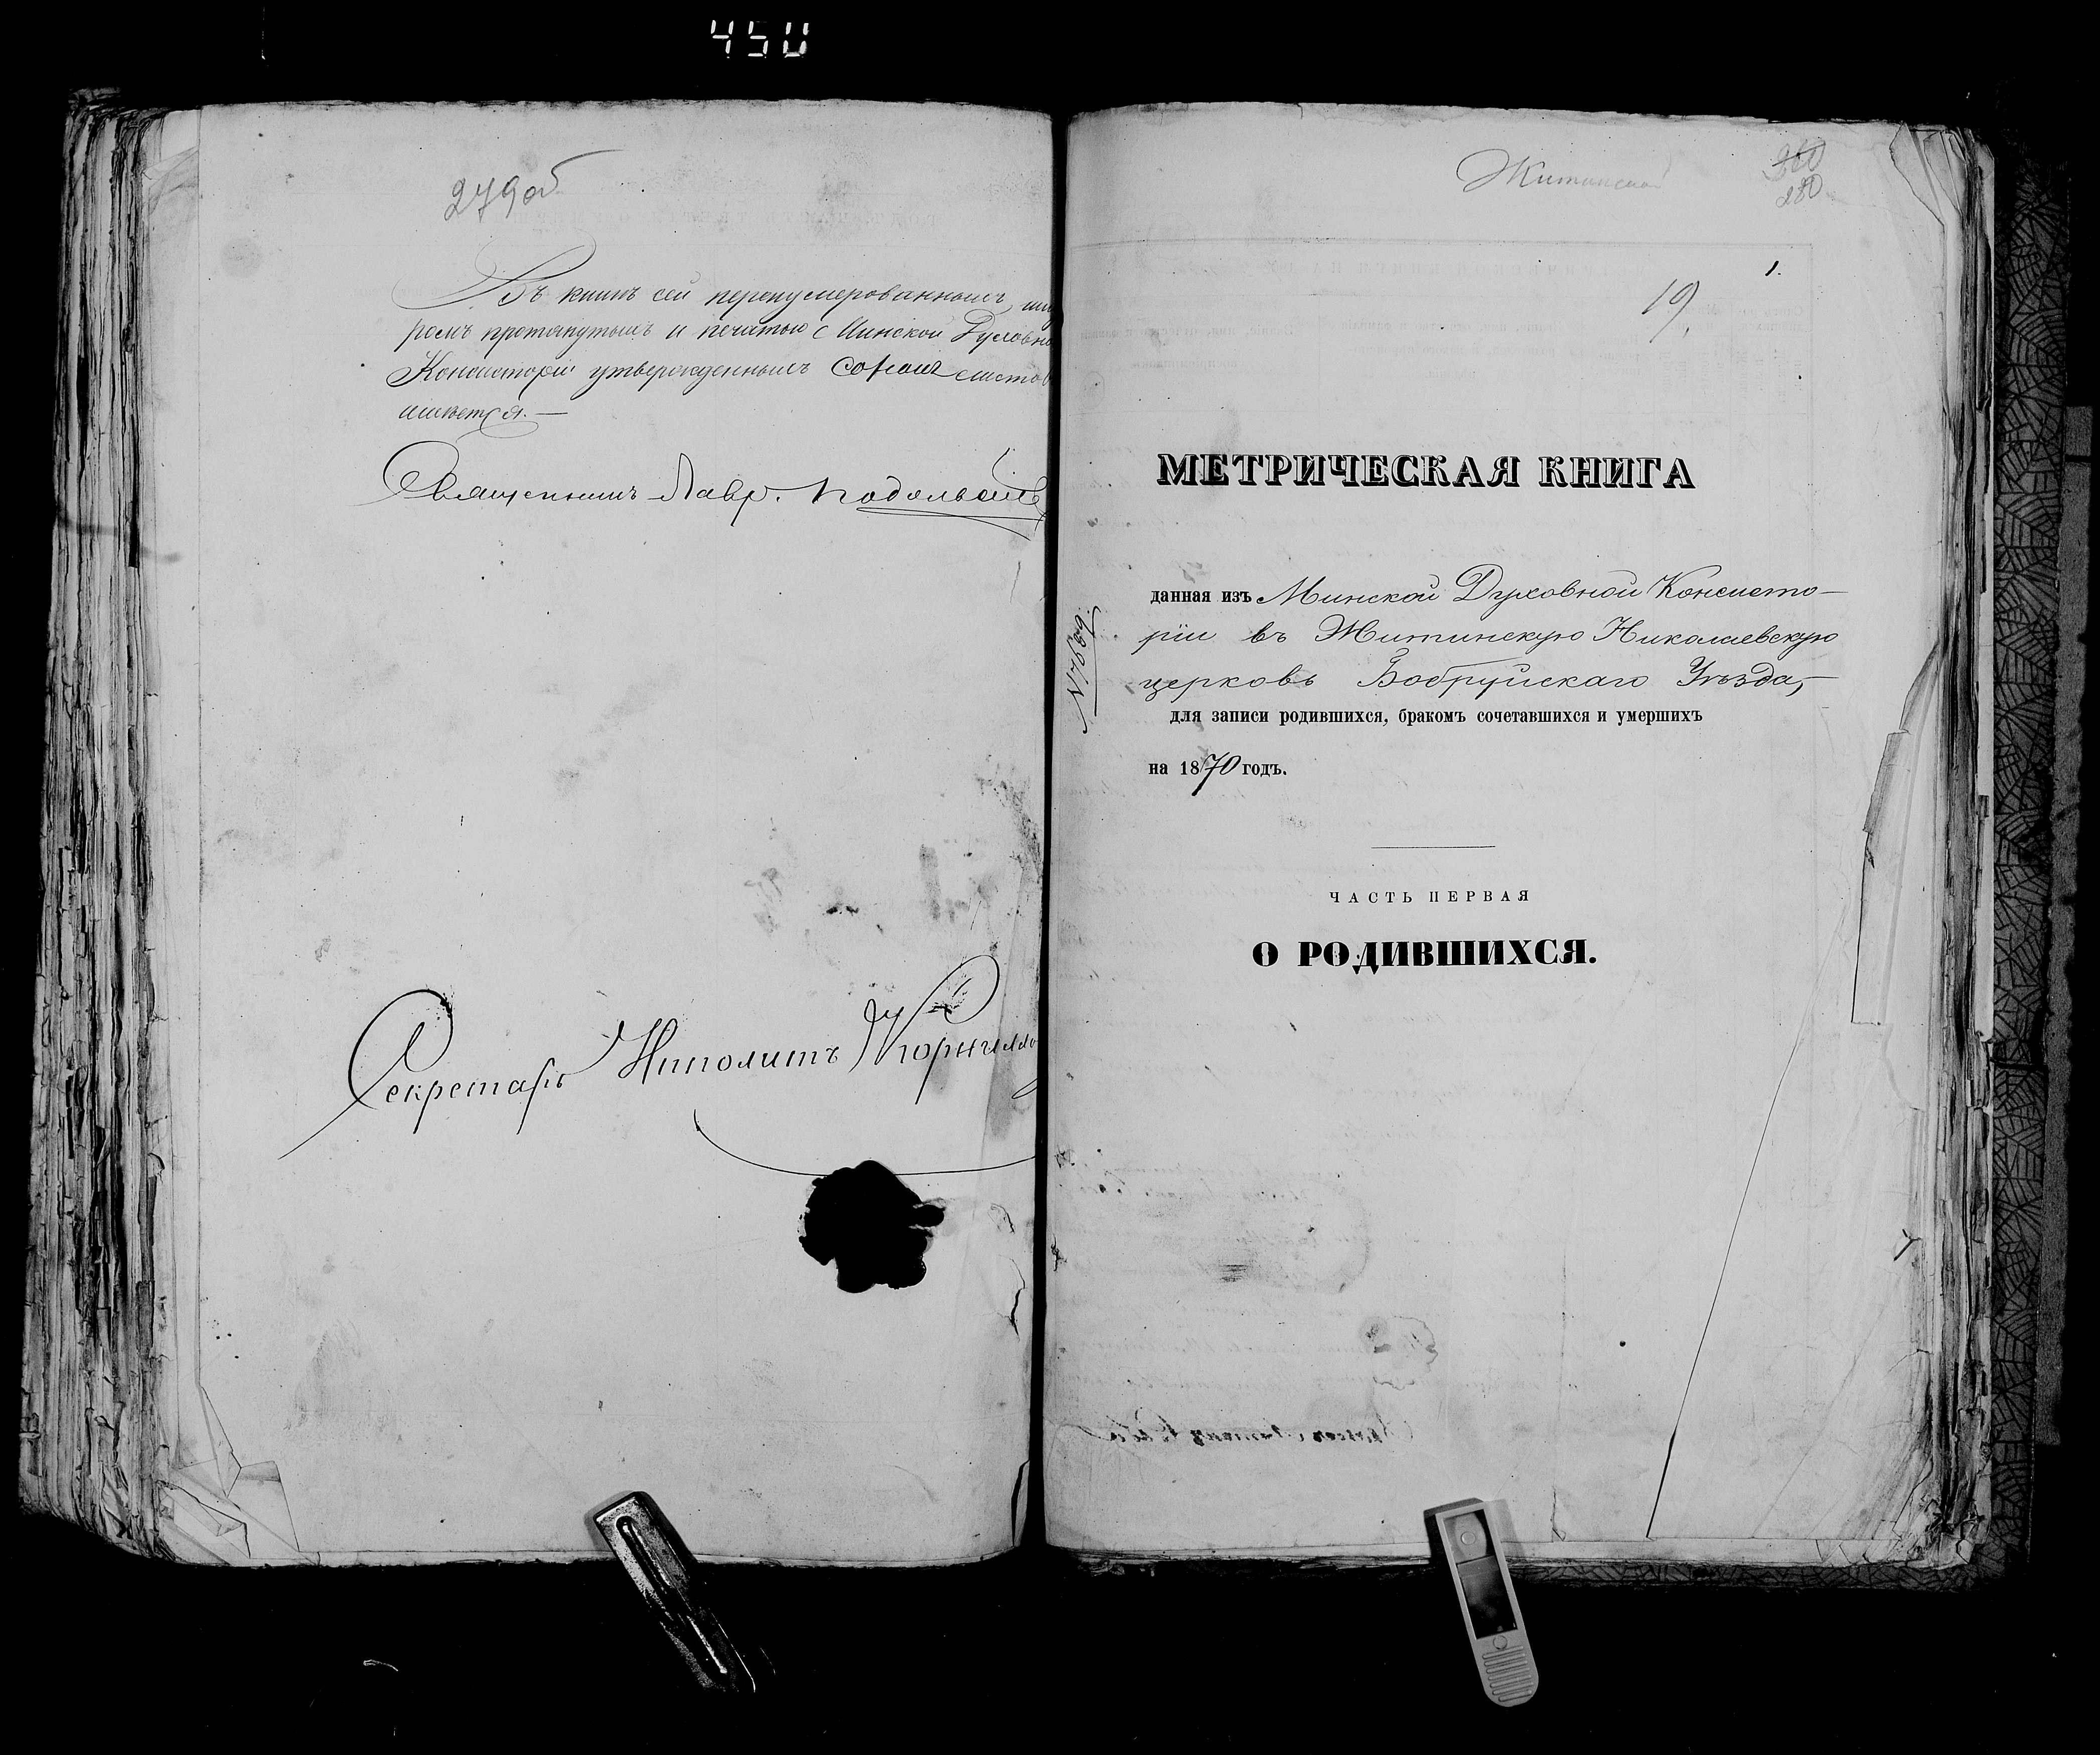 450
279об
Въ книгѣ сей перенумерованныхъ, шну
ромъ протянутыхъ и печатью Минской Духовно
Консисторіи утвержденныхъ сорокъ листов
имѣется.—
Священникъ Лавр.
Секретарь Ипполитъ Корнилло
Житинской
360
280
1.
19.
МЕТРИЧЕСКАЯ КНИГА
данная изъ Минской Духовной Консисто-
ріи въ Житинскую Николаевскую
церковь Бобруйскаго Уѣзда,—
для записи родившихся, бракомъ сочетавшихся и умершихъ
на 1870 годъ.
ЧАСТЬ ПЕРВАЯ
О РОДИВШИХСЯ.